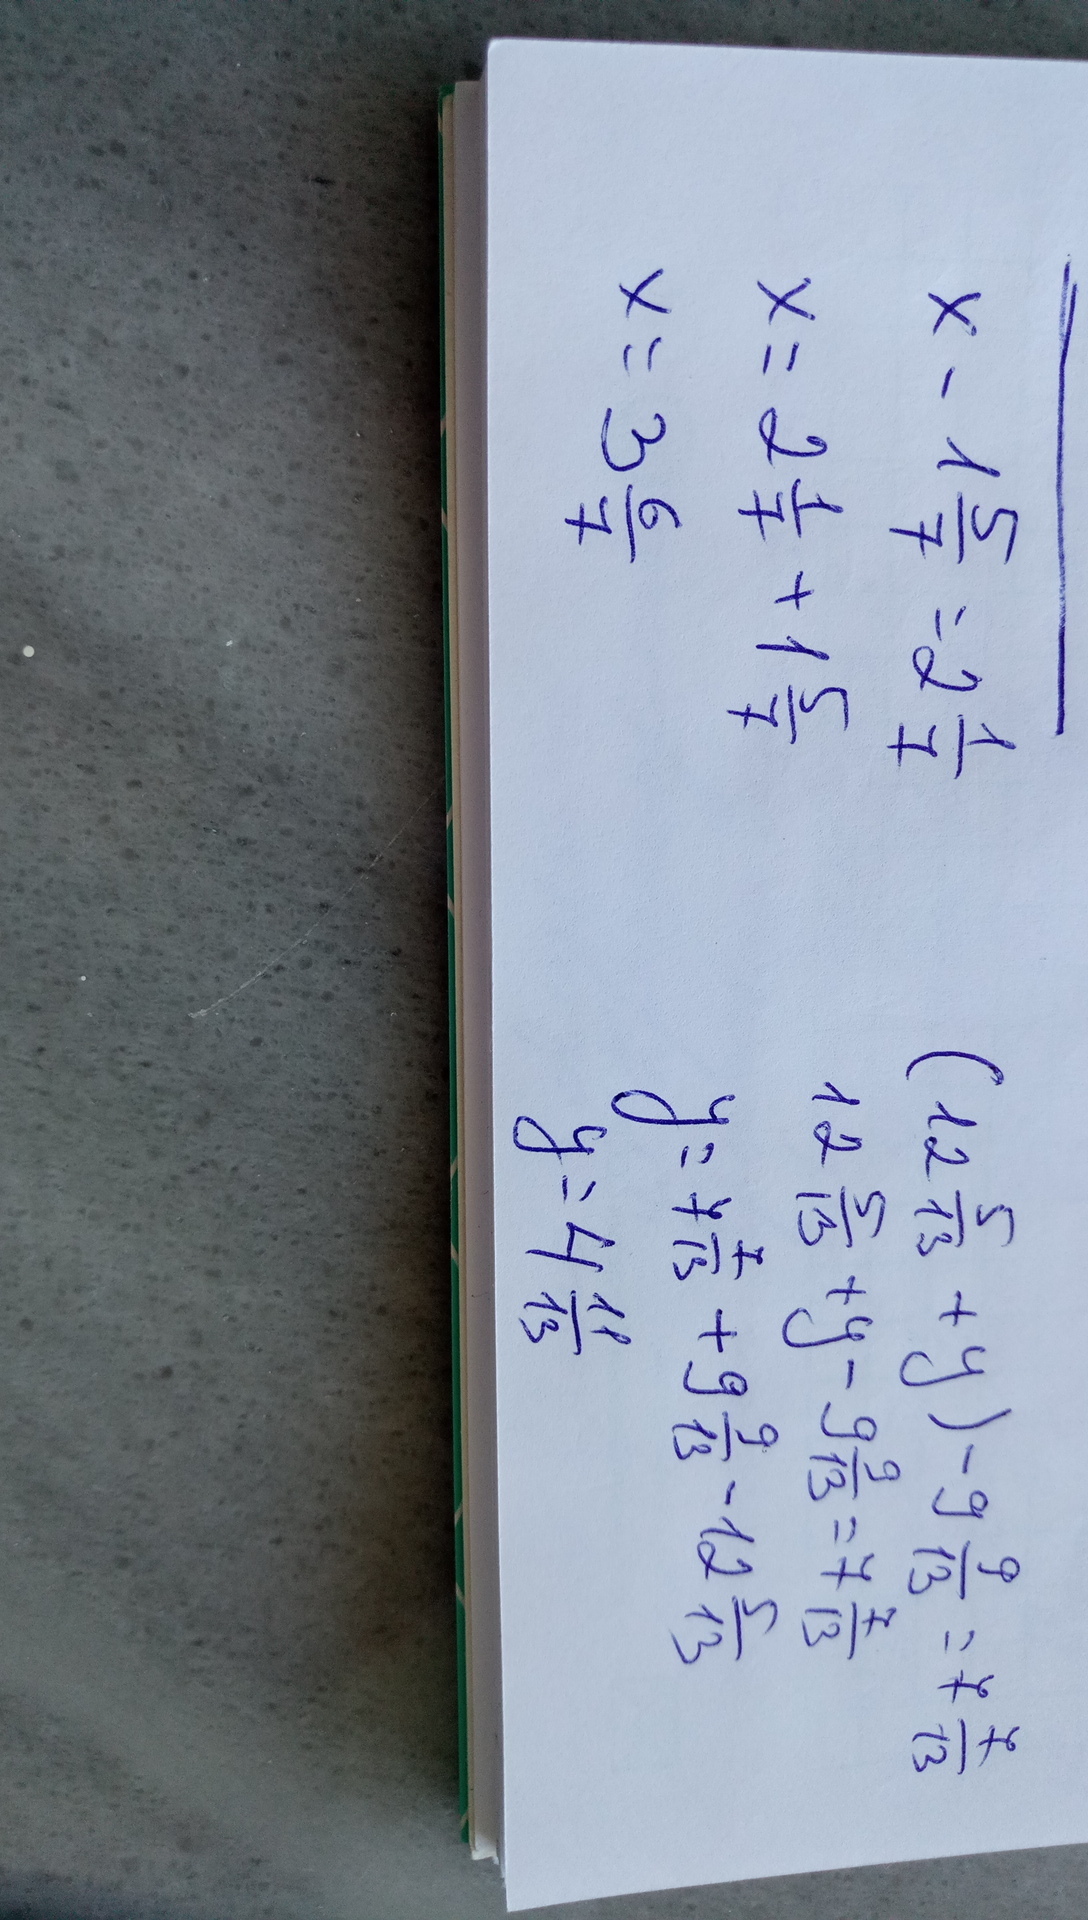 x - 1 5/7 = 2 1/7
x = 2 1/7 + 1 5/7
x = 3 6/7
(12 5/13 + y) - 9 9/13 = 7 7/13
12 5/13 + y - 9 9/13 = 7 7/13
y = 7 7/13 + 9 9/13 - 12 5/13
y = 4 11/13